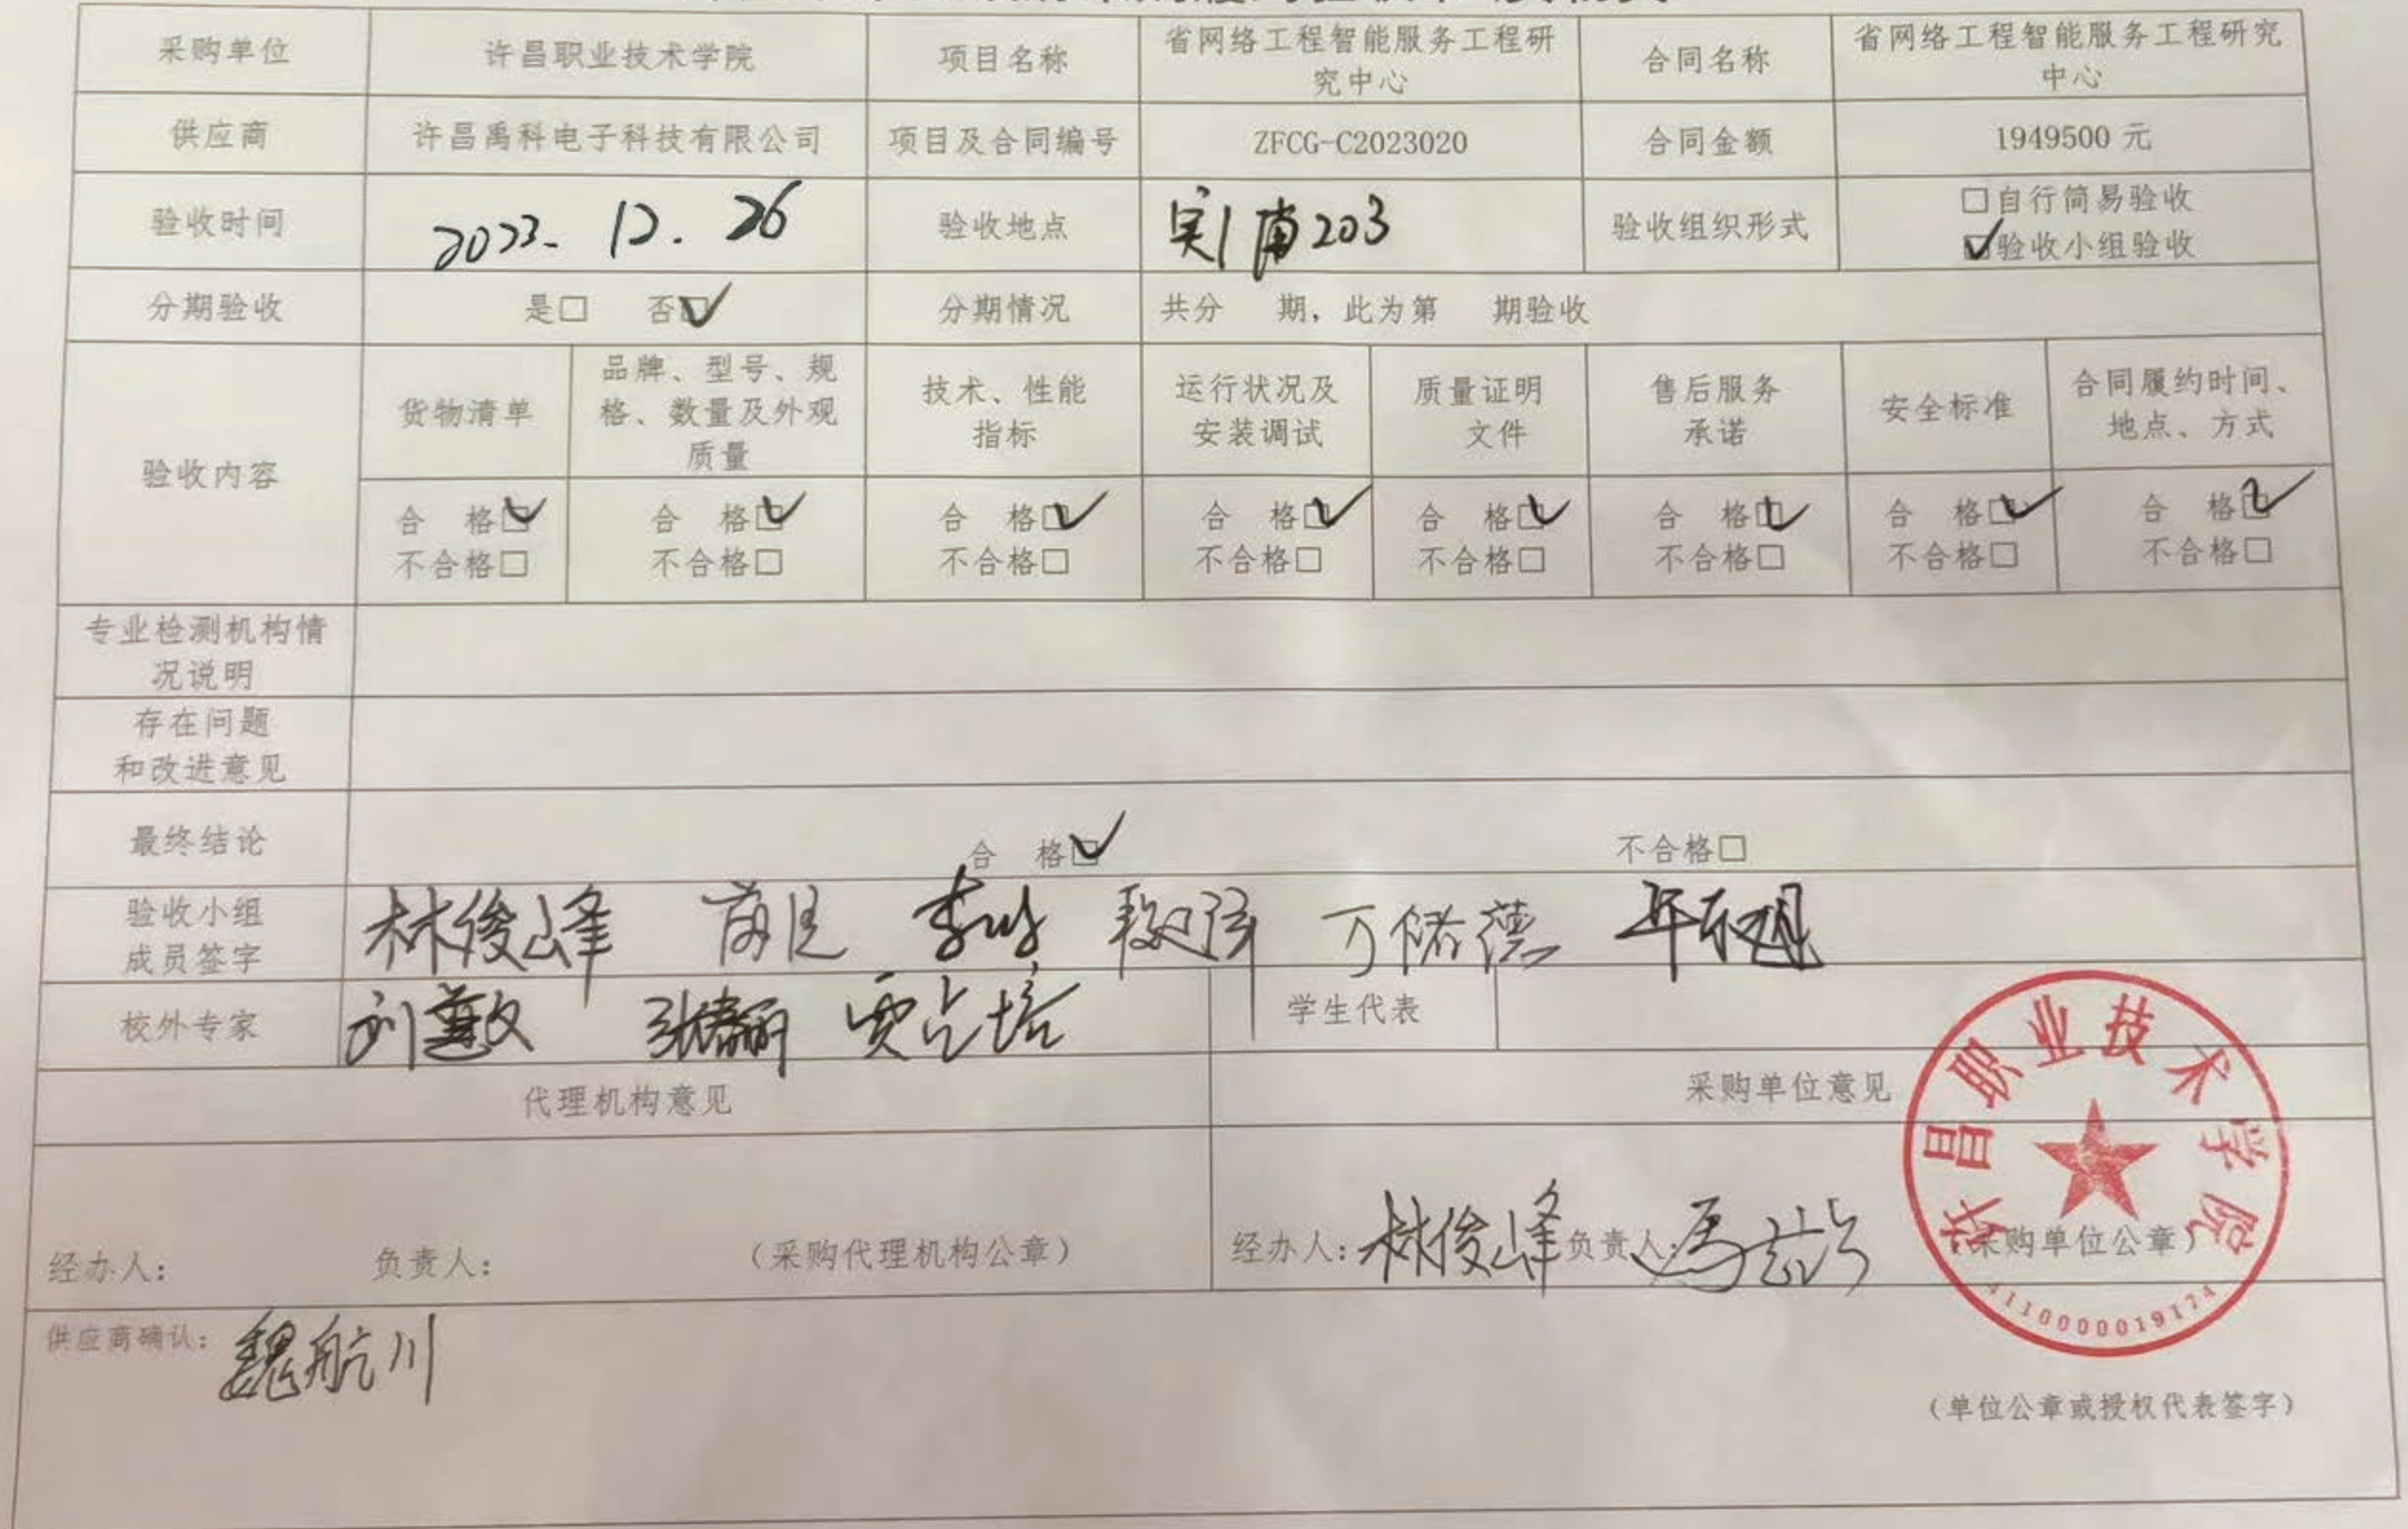 采购单位 许昌职业技术学院 项目名称 省网络工程智能服务工程研究中心 合同名称 省网络工程智能服务工程研究中心
供应商 许昌禹科电子科技有限公司 项目及合同编号 ZFCG-C2023020 合同金额 1949500 元
验收时间 2023. 12. 26 验收地点 实1南203 验收组织形式 □自行简易验收
☑验收小组验收
分期验收 是□ 否☑ 分期情况 共分 期，此为第 期验收
验收内容 货物清单 品牌、型号、规格、数量及外观质量 技术、性能指标 运行状况及安装调试 质量证明文件 售后服务承诺 安全标准 合同履约时间、地点、方式
合 格☑ 合 格☑ 合 格☑ 合 格☑ 合 格☑ 合 格☑ 合 格☑ 合 格☑
不合格□ 不合格□ 不合格□ 不合格□ 不合格□ 不合格□ 不合格□ 不合格□
专业检测机构情况说明
存在问题
和改进意见
最终结论 合 格☑ 不合格□
验收小组
成员签字 林俊峰
校外专家 学生代表
代理机构意见 采购单位意见
经办人： 负责人： （采购代理机构公章） 经办人：林俊峰 负责人： （采购单位公章）
许昌职业技术学院
4110000019174
供应商确认：魏航川
（单位公章或授权代表签字）